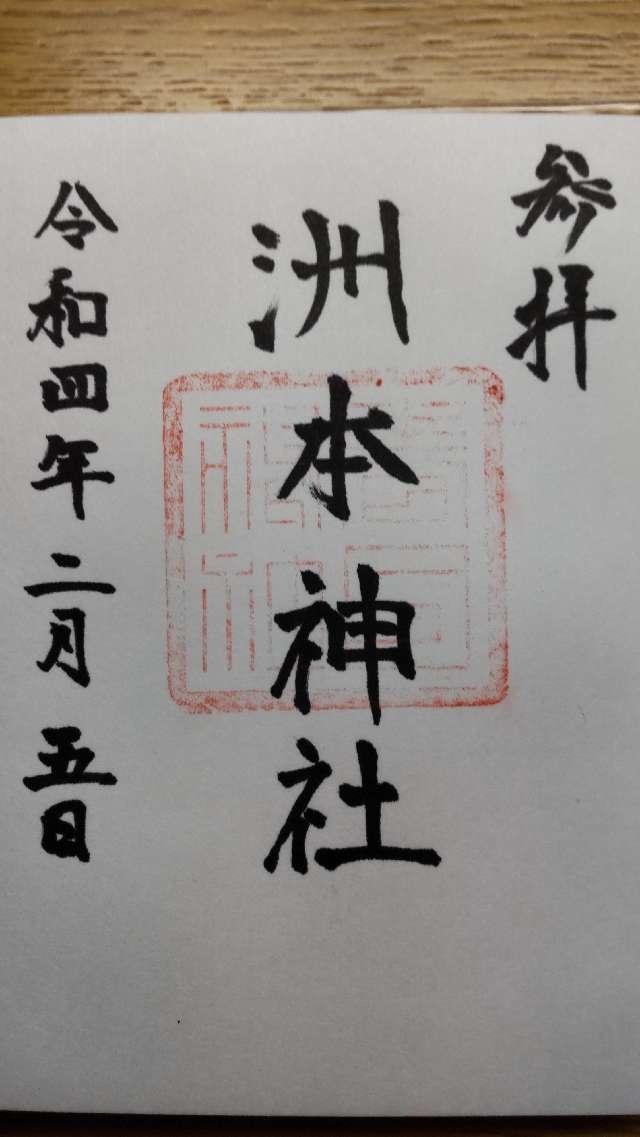 参拝
洲本神社
令和四年二月五日